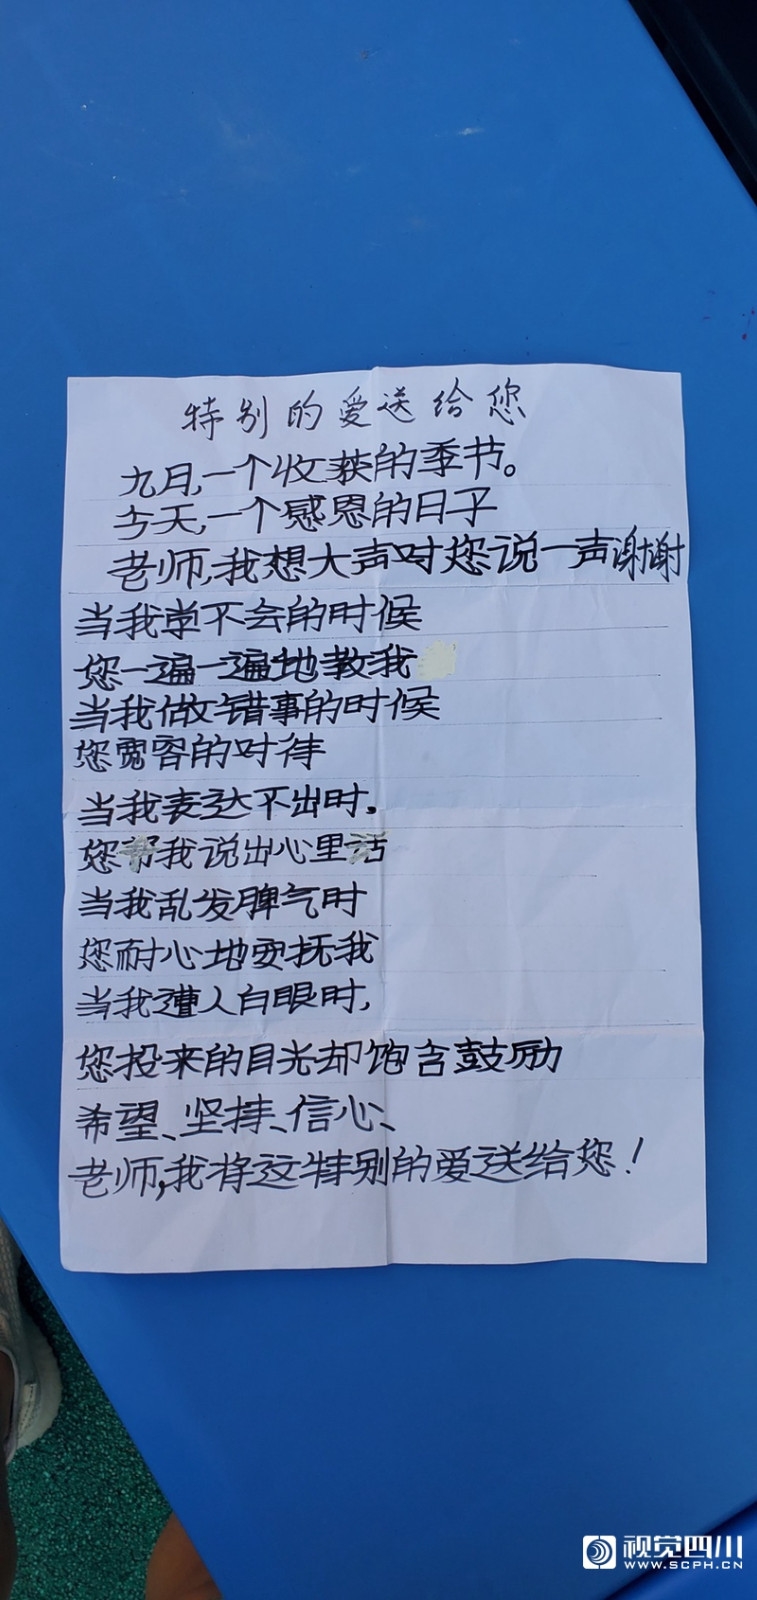 特别的爱送给您
九月,一个收获的季节。
今天,一个感恩的日子
老师,我想大声对您说一声谢谢
当我学不会的时候
您一遍一遍地教我
当我做错事的时候
您宽容的对待
当我表达不出时。
您帮我说出心里话
当我乱发脾气时
您耐心地安抚我
当我遭人白眼时,
您投来的目光却饱含鼓励
希望、坚持、信心、
老师,我将这特别的爱送给您!
视觉四川
WWW.SCPH.CN